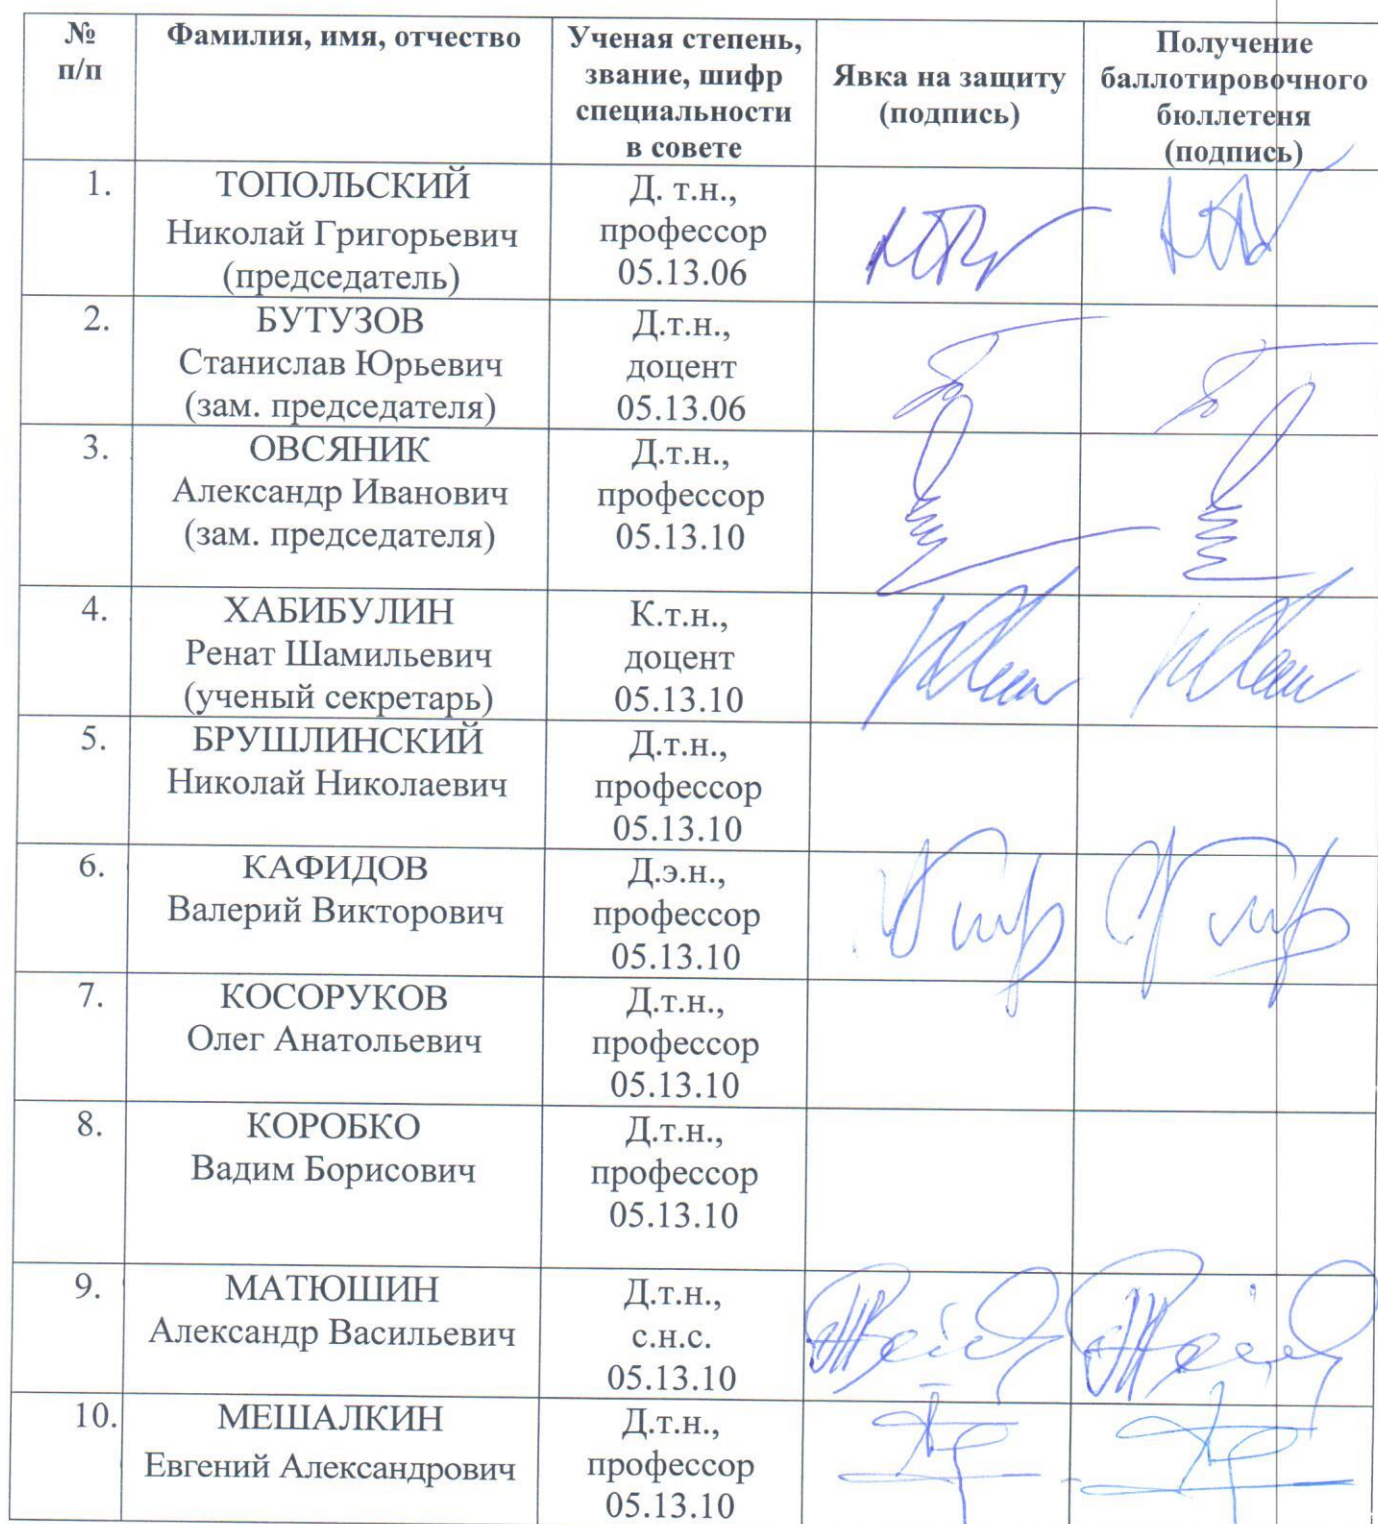 №
п/п
Фамилия, имя, отчество
Ученая степень,
звание, шифр
специальности
в совете
Явка на защиту
(подпись)
Получение
баллотировочного
бюллетеня
(подпись)
1.
ТОПОЛЬСКИЙ
Николай Григорьевич
(председатель)
Д. т.н.,
профессор
05.13.06
2.
БУТУЗОВ
Станислав Юрьевич
(зам. председателя)
Д.т.н.,
доцент
05.13.06
3.
ОВСЯНИК
Александр Иванович
(зам. председателя)
Д.т.н.,
профессор
05.13.10
4.
ХАБИБУЛИН
Ренат Шамильевич
(ученый секретарь)
К.т.н.,
доцент
05.13.10
5.
БРУШЛИНСКИЙ
Николай Николаевич
Д.т.н.,
профессор
05.13.10
6.
КАФИДОВ
Валерий Викторович
Д.э.н.,
профессор
05.13.10
7.
КОСОРУКОВ
Олег Анатольевич
Д.т.н.,
профессор
05.13.10
8.
КОРОБКО
Вадим Борисович
Д.т.н.,
профессор
05.13.10
9.
МАТЮШИН
Александр Васильевич
Д.т.н.,
с.н.с.
05.13.10
10.
МЕШАЛКИН
Евгений Александрович
Д.т.н.,
профессор
05.13.10